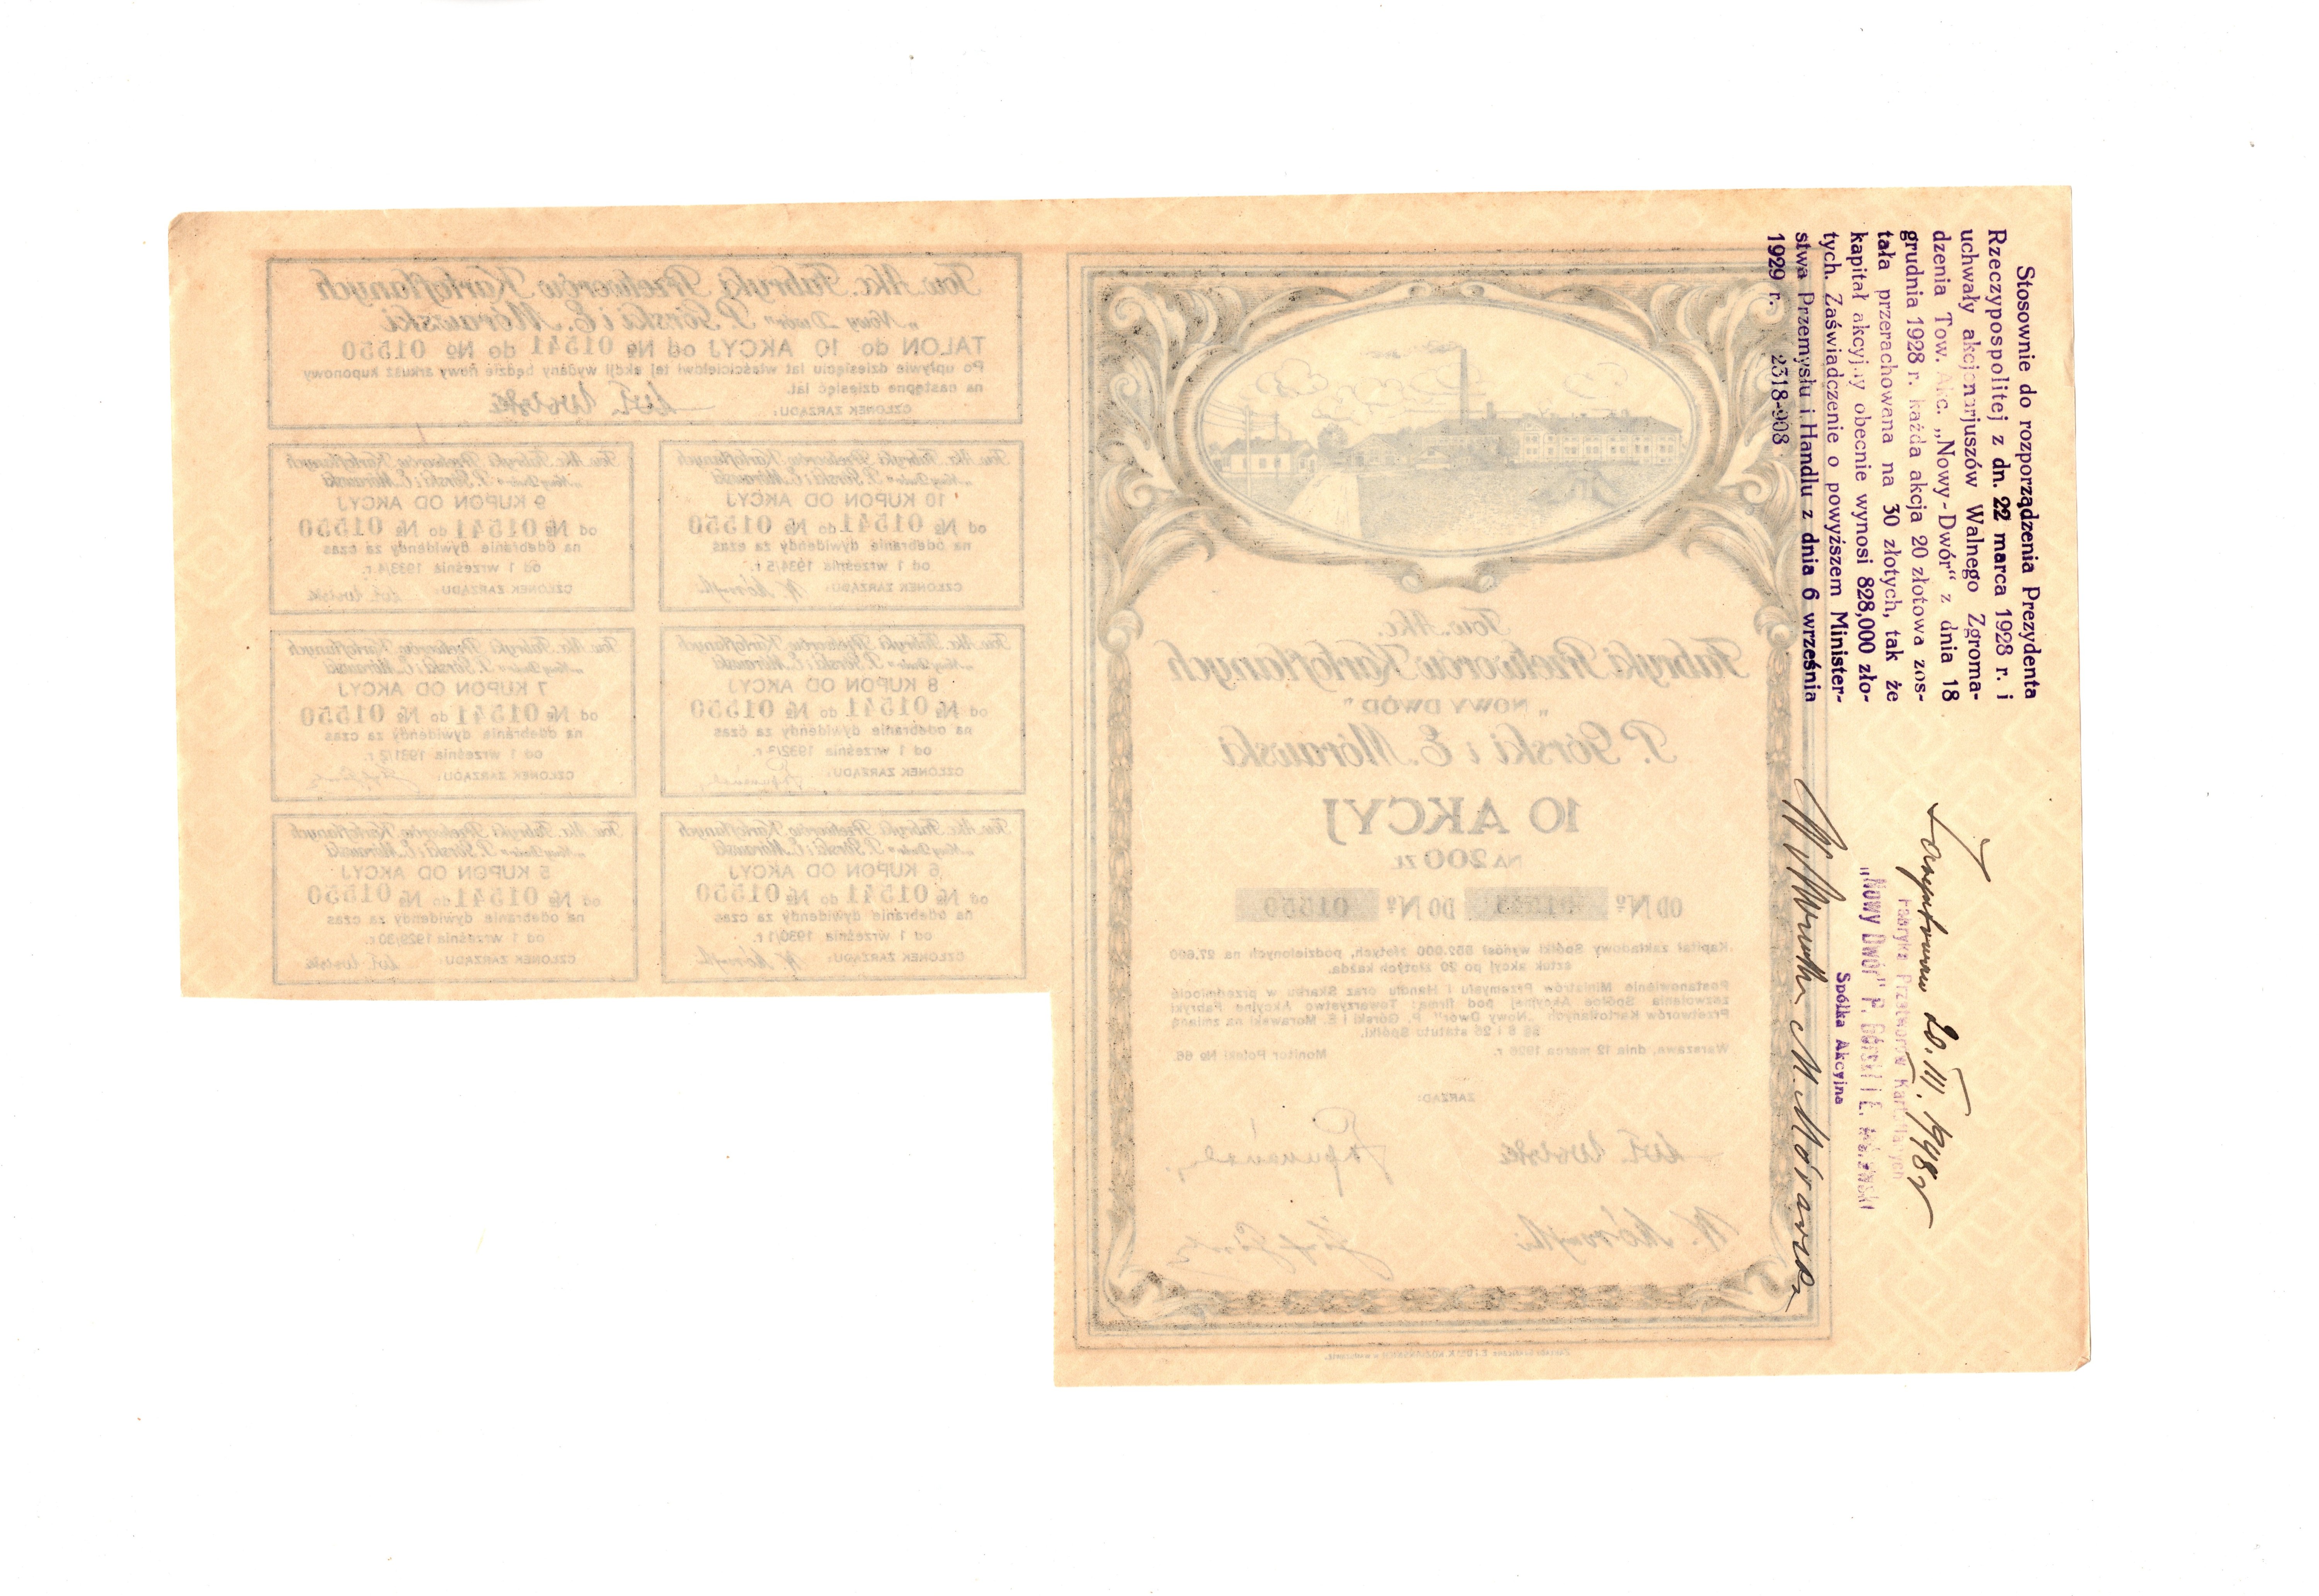 Stosownie do rozporządzenia Prezydenta
Rzeczypospolitej z dn. 22 marca 1928 r. i
uchwały akcjonarjuszów Walnego Zgroma-
dzenia Tow. Akc. „Nowy-Dwór“ z dnia 18
grudnia 1928 r. każda akcja 20 złotowa zos-
tała przerachowana na 30 złotych, tak że
kapitał akcyjny obecnie wynosi 828,000 zło-
tych. Zaświadczenie o powyższem Minister-
stwa Przemysłu i Handlu z dnia 6 września
1929 r. 2318-908
28. III. 1948 r
Fabryka Przetworów Kartoflanych
„Nowy Dwór" P. Górski i E. Mórawski
Spółka Akcyjna
M. Mórawska
Tow. Akc. Fabryki Przetworów Kartoflanych
„Nowy Dwór" P. Górski i E. Mórawski
TALON do 10 AKCYJ od № 01541 do № 01550
Po upływie dziesięciu lat właścicielowi tej akcji wydany będzie nowy arkusz kuponowy
na następne dziesięć lat.
CZŁONEK ZARZĄDU:
Tow. Akc. Fabryki Przetworów Kartoflanych
„Nowy Dwór" P. Górski i E. Mórawski
10 KUPON OD AKCYJ
od № 01541 do № 01550
na odebranie dywidendy za czas
od 1 września 1934/5 r.
CZŁONEK ZARZĄDU:
Tow. Akc. Fabryki Przetworów Kartoflanych
„Nowy Dwór" P. Górski i E. Mórawski
9 KUPON OD AKCYJ
od № 01541 do № 01550
na odebranie dywidendy za czas
od 1 września 1933/4 r.
CZŁONEK ZARZĄDU:
Tow. Akc. Fabryki Przetworów Kartoflanych
„Nowy Dwór" P. Górski i E. Mórawski
8 KUPON OD AKCYJ
od № 01541 do № 01550
na odebranie dywidendy za czas
od 1 września 1932/3 r.
CZŁONEK ZARZĄDU:
Tow. Akc. Fabryki Przetworów Kartoflanych
„Nowy Dwór" P. Górski i E. Mórawski
7 KUPON OD AKCYJ
od № 01541 do № 01550
na odebranie dywidendy za czas
od 1 września 1931/2 r.
CZŁONEK ZARZĄDU:
Tow. Akc. Fabryki Przetworów Kartoflanych
„Nowy Dwór" P. Górski i E. Mórawski
6 KUPON OD AKCYJ
od № 01541 do № 01550
na odebranie dywidendy za czas
od 1 września 1930/1 r.
CZŁONEK ZARZĄDU:
Tow. Akc. Fabryki Przetworów Kartoflanych
„Nowy Dwór" P. Górski i E. Mórawski
5 KUPON OD AKCYJ
od № 01541 do № 01550
na odebranie dywidendy za czas
od 1 września 1929/30 r.
CZŁONEK ZARZĄDU:
Tow. Akc.
Fabryki Przetworów Kartoflanych
„NOWY DWÓR"
P. Górski i E. Mórawski
10 AKCYJ
NA 200 ZŁ
OD № 01541 DO № 01550
Kapitał zakładowy Spółki wyniósł 552.000 złotych, podzielonych na 27.600
sztuk akcyj po 20 złotych każda.
Postanowienie Ministrów Przemysłu i Handlu oraz Skarbu w przedmiocie
zezwolenia Spółce Akcyjnej pod firmą: Towarzystwo Akcyjne Fabryki
Przetworów Kartoflanych „Nowy Dwór" P. Górski i E. Morawski na zmianę
§§ 6 i 26 statutu Spółki.
Warszawa, dnia 12 marca 1926 r. Monitor Polski № 66.
ZARZĄD: